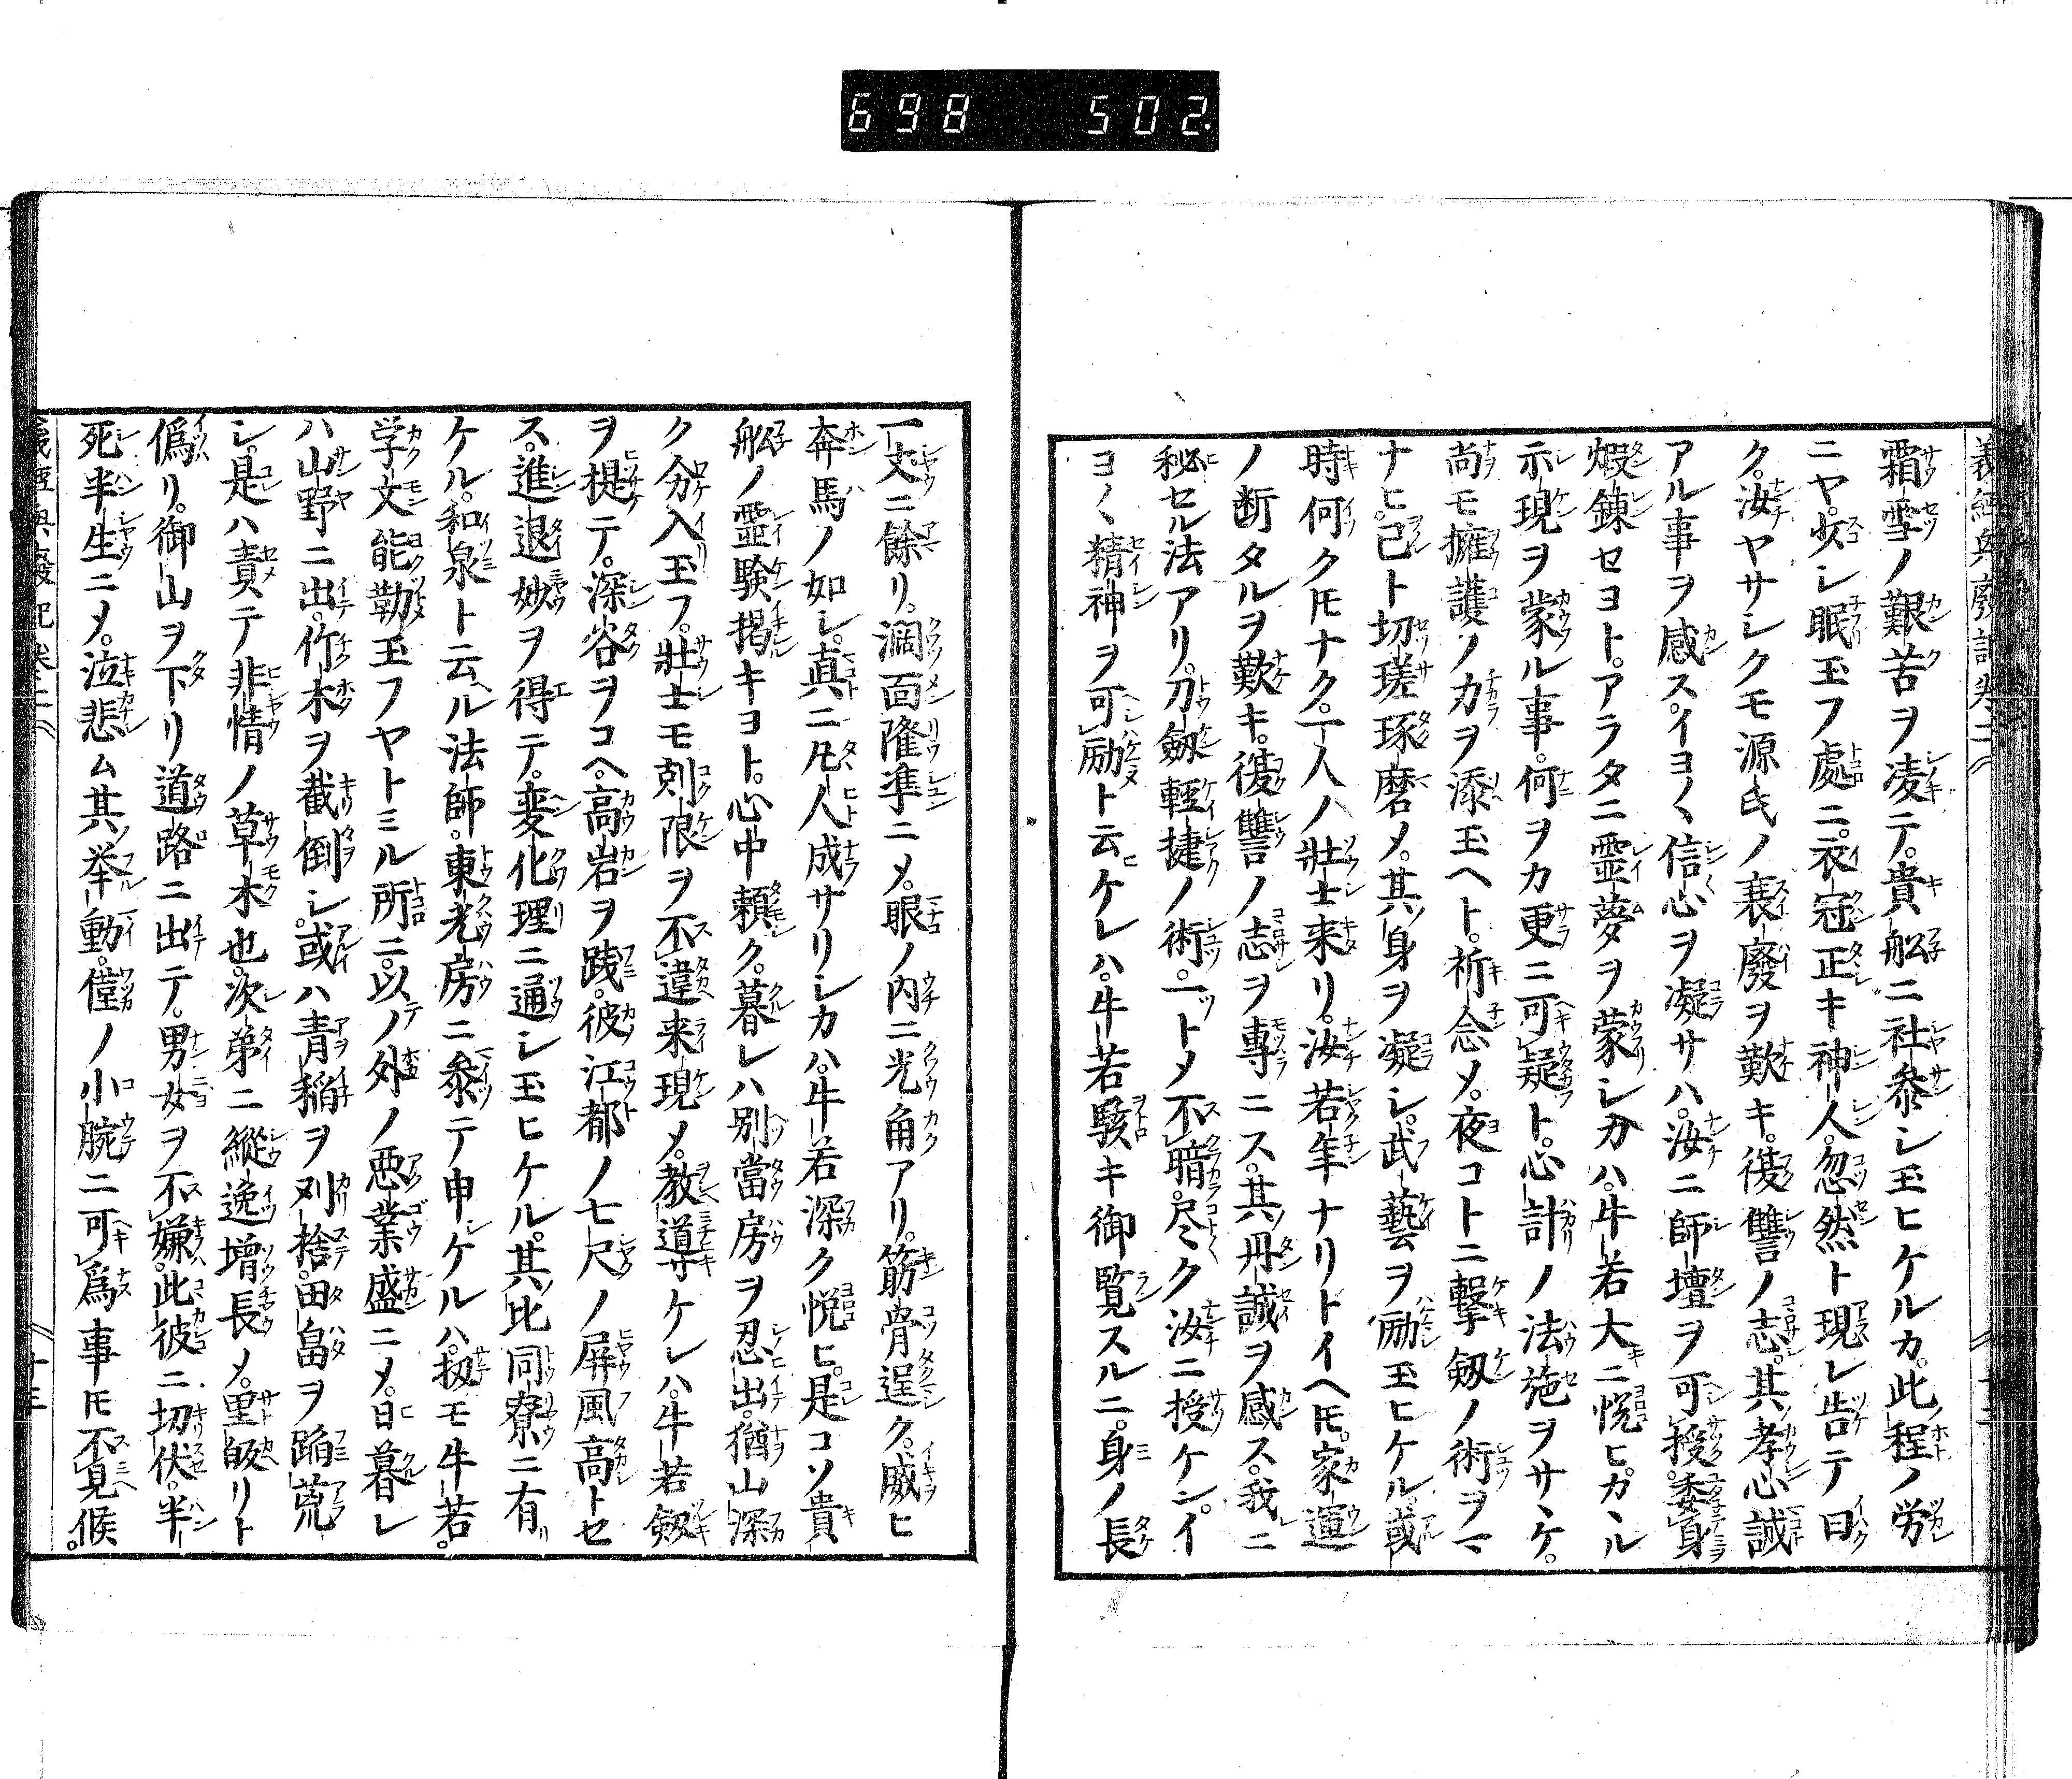 698 502.
義經興廢記卷二
霜雪ノ艱苦ヲ凌テ。貴舩ニ社参シ玉ヒケルカ。此程ノ労
ニヤ。少シ眠玉フ處ニ。衣冠正キ神人。忽然ト現レ告テ曰
ク。汝ヤサシクモ源氏ノ衰廢ヲ歎キ。復讐ノ志。其孝心誠
アル事ヲ感ス。イヨ〱信心ヲ凝サハ。汝ニ師壇ヲ可授。委身
煆錬セヨト。アラタニ霊夢ヲ蒙シカハ。牛若大ニ悦ヒ。カヽル
示現ヲ蒙ル事。何ヲカ更ニ可疑ト。心計ノ法施ヲサヽケ。
尚モ擁護ノカヲ添玉ヘト。祈念メ。夜コトニ撃剱ノ術ヲマ
ナヒ。己ト切瑳琢磨メ。其身ヲ凝シ。武藝ヲ励玉ヒケル。或
時何クトモナク。一人ノ壯士来リ。汝若年ナリトイヘトモ。家運
ノ断タルヲ歎キ。復讐ノ志ヲ專ニス。其丹誠ヲ感ス。我ニ
秘セル法アリ。刀劔輕捷ノ術。一ットメ不暗。尽ク汝ニ授ケン。イ
ヨ〱精神ヲ可励ト云ケレハ。牛若駭キ御覧スルニ。身ノ長
一丈ニ餘リ。濶面隆準ニメ。眼ノ内ニ光角アリ。筋骨逞ク。威ヒ
奔馬ノ如シ。真ニ凡人成サリシカハ。牛若深ク悦ヒ。是コソ貴
舩ノ霊験掲キヨト。心中頼ク。暮レハ別當房ヲ忍出。猶山深
ク分入玉フ。壯士モ刻限ヲ不違来現メ。教導サケレハ。牛若劔
ヲ提テ。深谷ヲコヘ。高岩ヲ践。彼江都ノ七尺ノ屏風高トセ
ス。進退妙ヲ得テ。変化理ニ通シ玉ヒケル。其比同寮ニ有
ケル。和泉ト云ル法師。東光房ニ參テ申ケルハ。扨モ牛若。
学文能勤玉フヤトミル所ニ。以ノ外ノ悪業盛ニメ。日暮レ
ハ山野ニ出。竹木ヲ截倒シ。或ハ青稲ヲ刈捨。田畠ヲ踰荒
シ。是ハ責テ非情ノ草木也。次弟ニ縱逸増長メ。里皈リト
偽リ。御山ヲ下リ道路ニ出テ。男女ヲ不嫌。此彼ニ切伏。半
死半生ニメ。泣悲ム其挙動。僅ノ小腕ニ可爲事トモ不見候。
義經興廢記卷二
十三